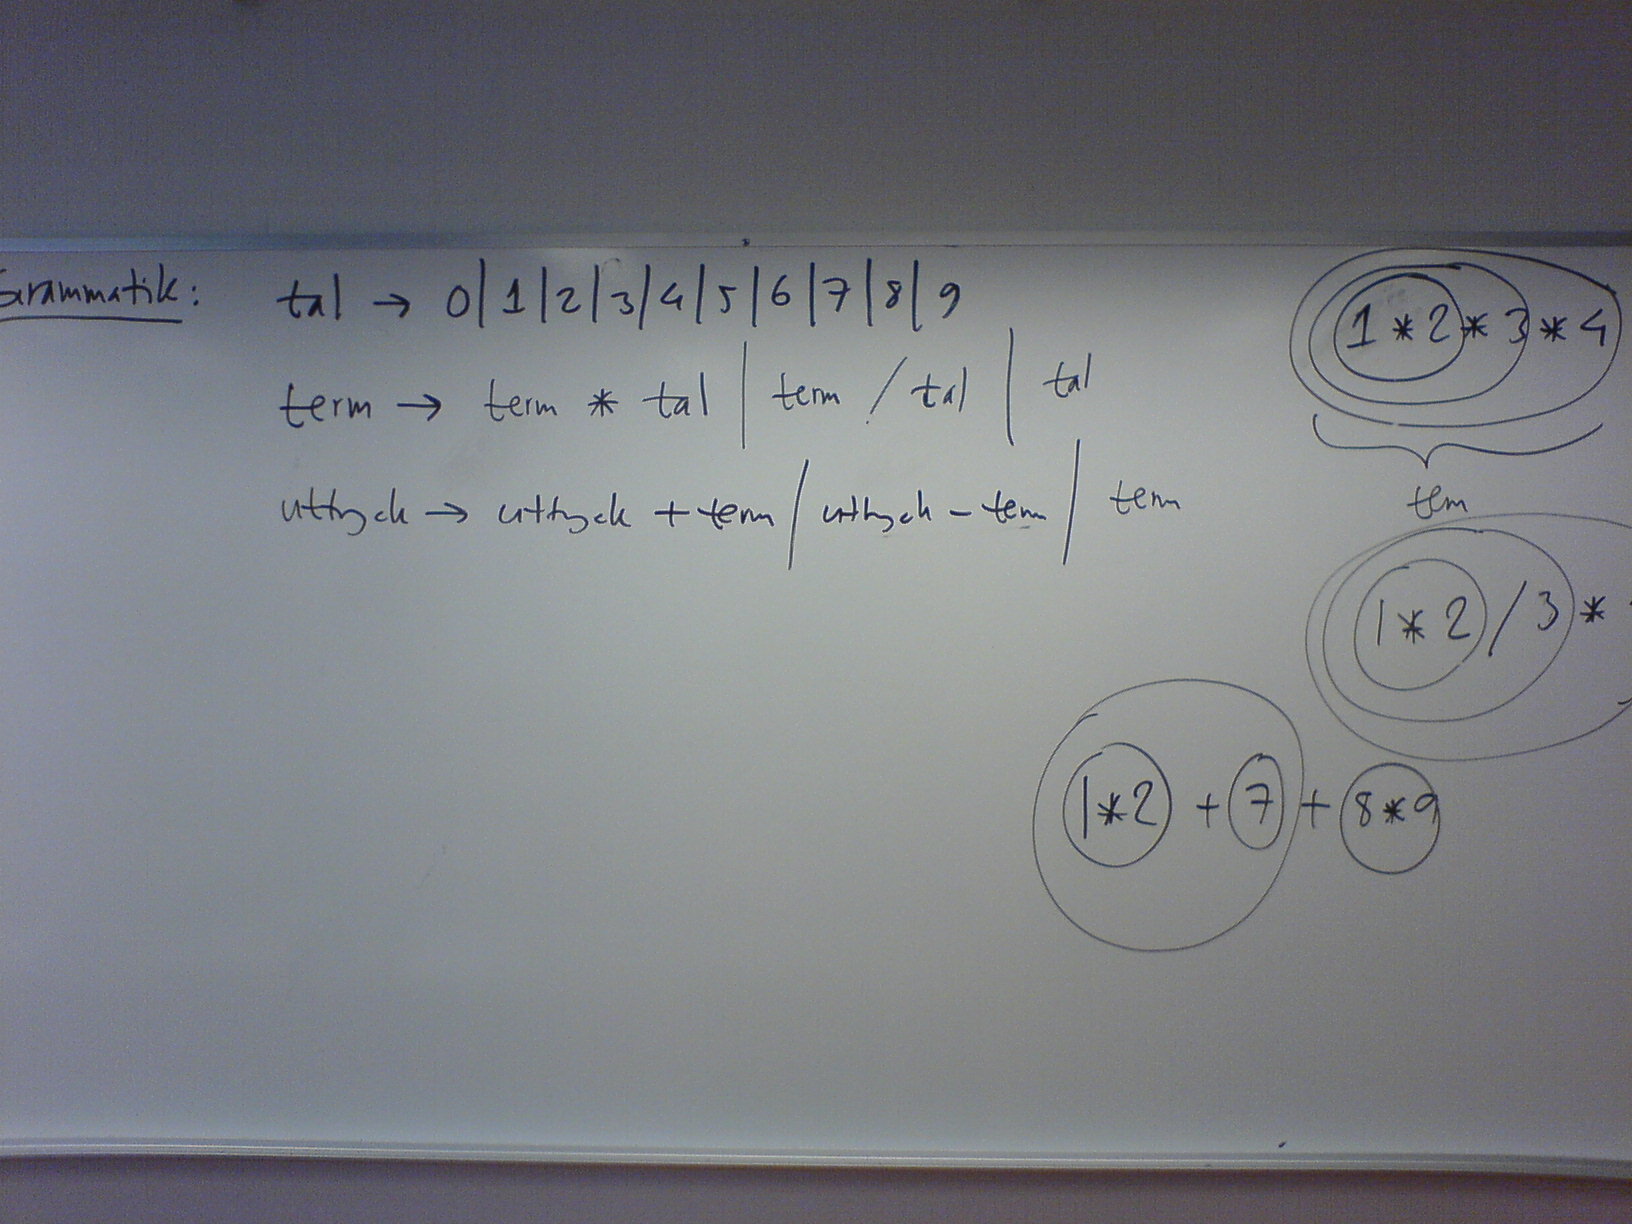 Grammatik: tal → 0|1|2|3|4|5|6|7|8|9
term → term * tal | term / tal | tal
uttryck → uttryck + term | uttryck - term | term
1 * 2 * 3 * 4
term
1 * 2 / 3 *
1 * 2 + 7 + 8 * 9